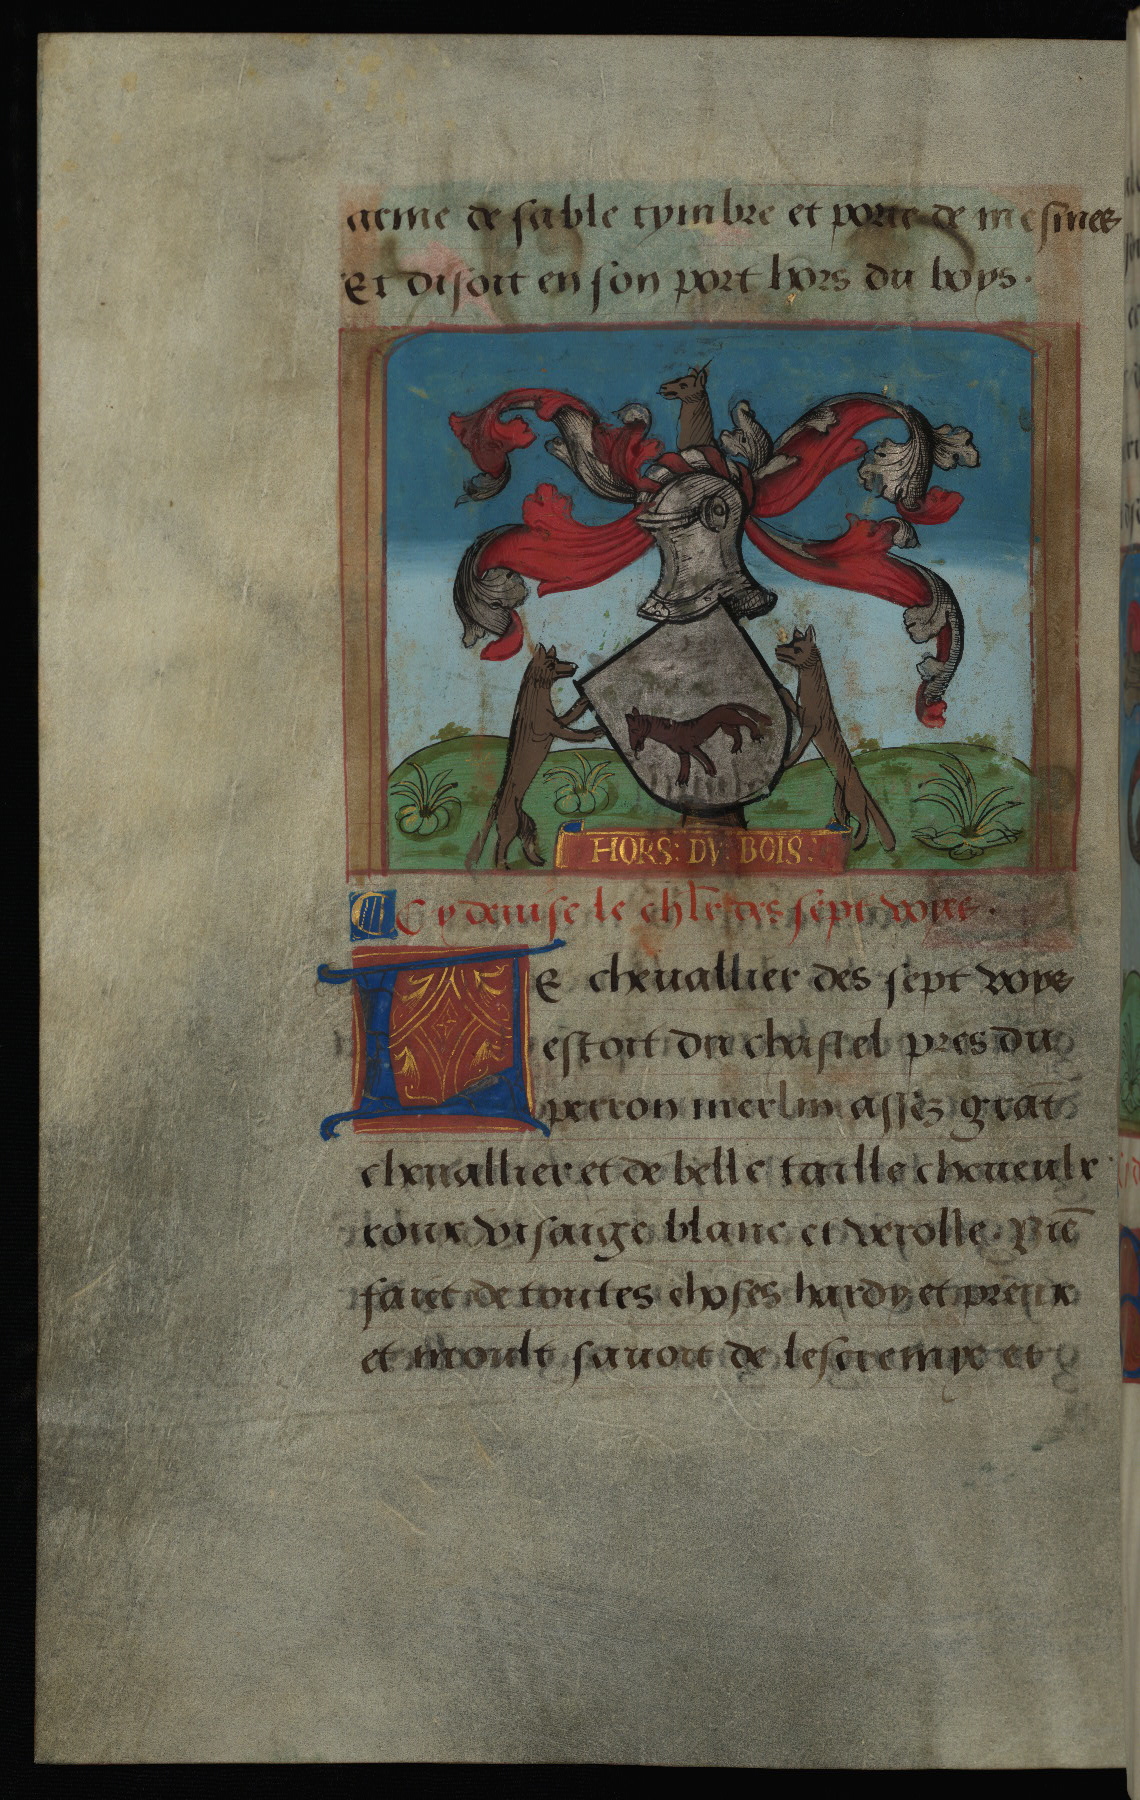 arme de sable tymbre et porte de mesmes
Et disoit en son port hors du boys.
HORS: DV: BOIS:
Cy deuise le chlr̄ des sept voyes.
LE cheuallier des sept voyes
estoit du chastel pres du
perron merlin assez grāt
cheuallier et de belle taille cheueulx
roux visaige blanc et verolle. Biē
faict de toutes choses hardy et preux
et moult sauoit de lescremye et